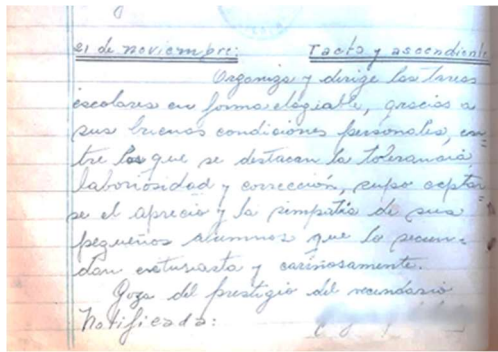 21 de noviembre: Tacto y ascendiente
Organiza y dirige las tareas
escolares en forma elogiable, gracias a
sus buenas condiciones personales, en-
tre las que se destacan la tolerancia
laboriosidad y corrección, supo captar-
se el aprecio y la simpatía de sus
pequeños alumnos que la secun-
dan entusiasta y cariñosamente.
Goza del prestigio del vecindario
Notificada: